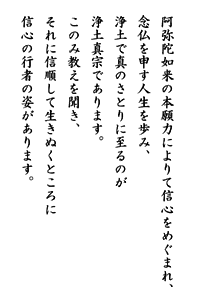 阿弥陀如来の本願力によりて信心をめぐまれ、
念仏を申す人生を歩み、
浄土で真のさとりに至るのが
浄土真宗であります。
このみ教えを聞き、
それに信順して生きぬくところに
信心の行者の姿があります。